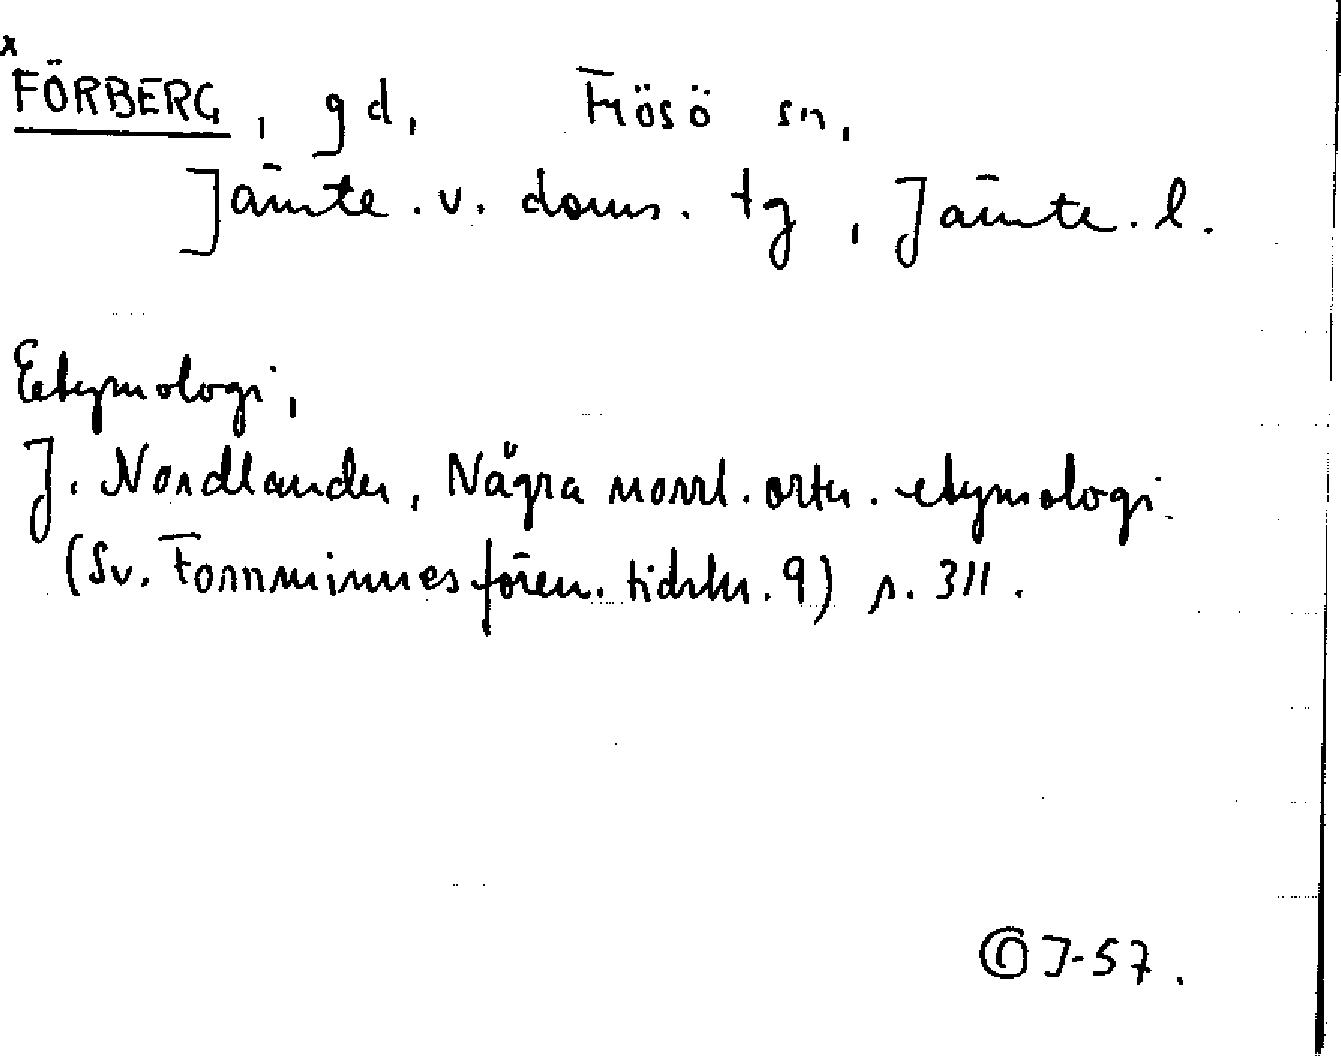 x
FÖRBERG, gd, Frösö sn,
Jämte. v. doms. tg, Jämte. l.
Etymologi,
J. Nordlander, Några norrl. ortn. etymologi
(Sv. Fornminnesfören. tidskr. 9) s. 311.
J-57.